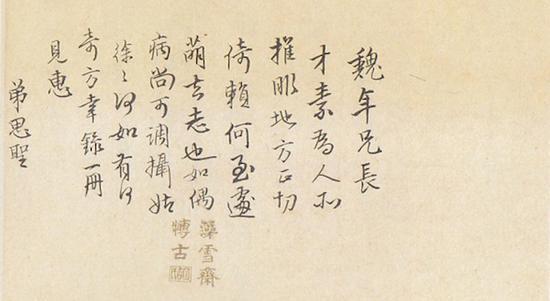 魏年兄長
才素為人所
推服地方正切
倚賴何至遽
萌去志也如偶
病尚可調攝姑
徐徐何如有何
奇方幸錄一冊
見惠
弟思聖
藻雪齋
博古